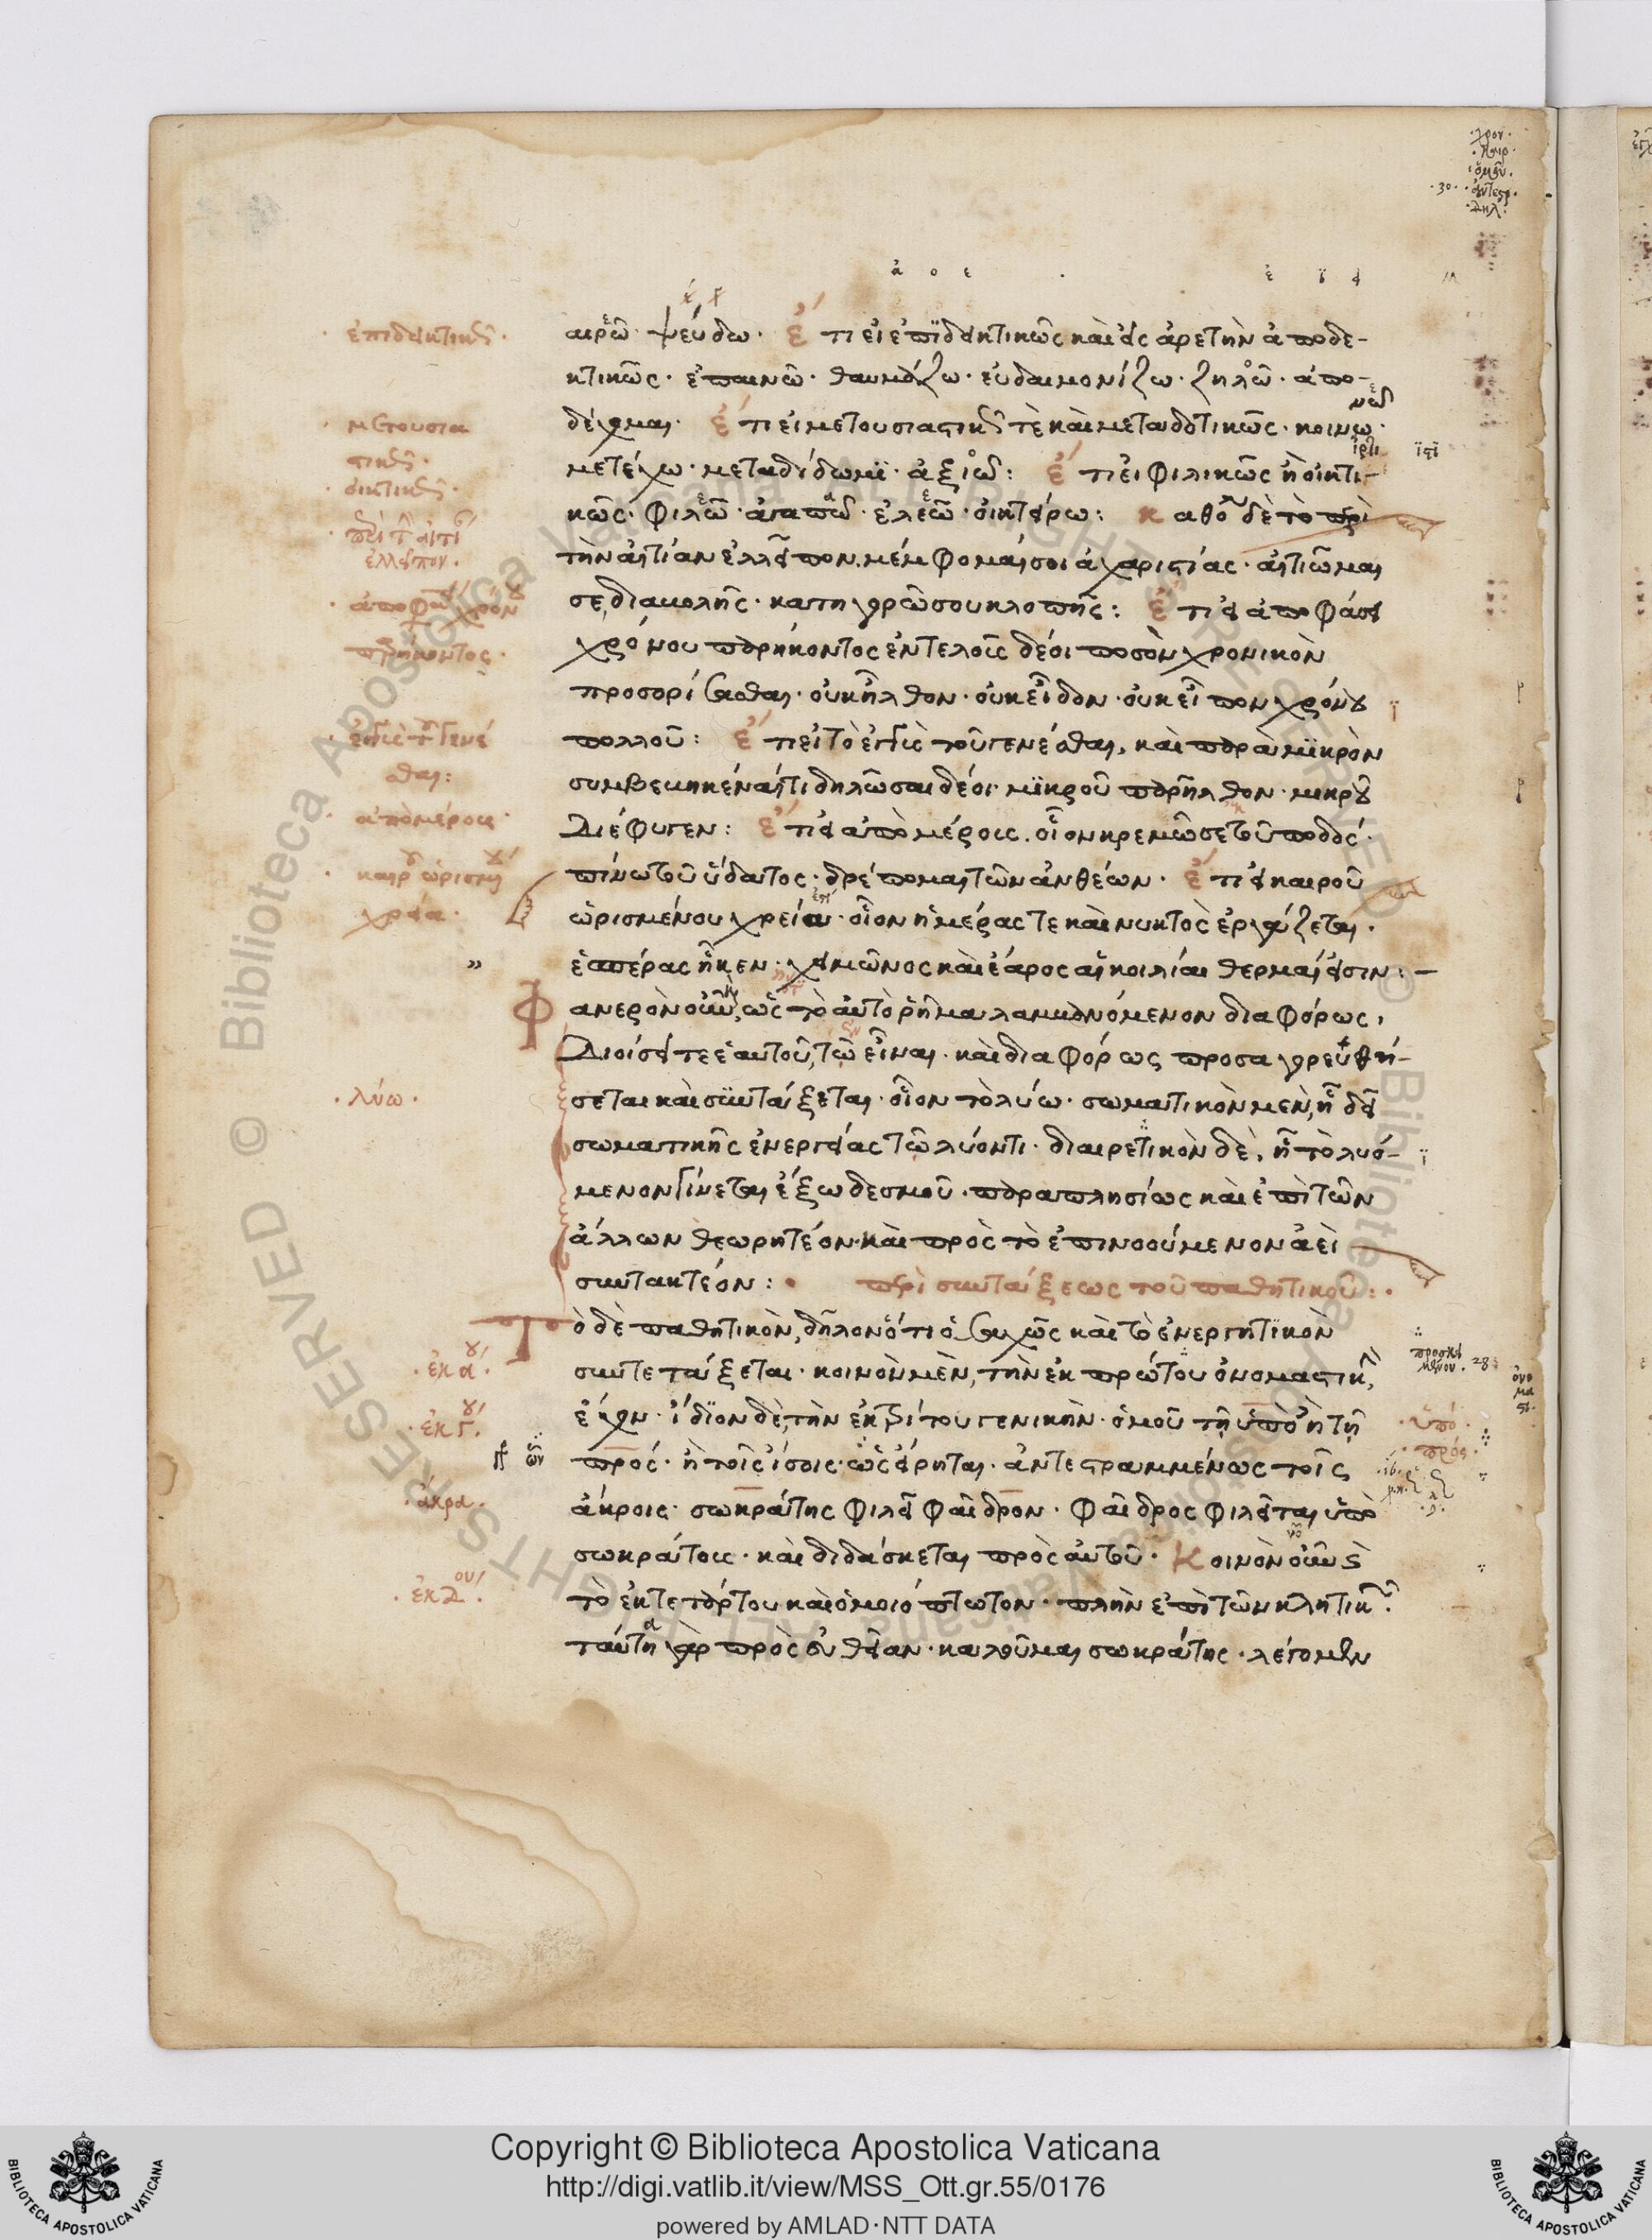 αιρῶ· ψεύδω· ἔτι εἰ ἐπιδεικτικῶς καὶ εἰς ἀρετὴν ἀποδε-
κτικῶς· ἐπαινῶ· θαυμάζω· εὐδαιμονίζω· ζηλῶ· ἀπο-
δέχομαι· ἔτι εἰ μετουσιαστικῶς τὲ καὶ μεταδοτικῶς· κοινωνῶ·
μετέχω· μεταδίδωμι· ἀξιῶ: ἔτι εἰ φιλικῶς ἢ οἰκτι-
κῶς· φιλῶ· ἀγαπῶ· ἐλεῶ· οἰκτείρω: καθὸ δὲ τὸ περὶ
τὴν αἰτίαν ἐλλεῖπον. μέμφομαί σοι ἀχαριστίας· αἰτιῶμαι
σε, διαβολῆς· κατηγορῶ σου κλοπῆς: ἔτι εἰ ἀποφάσει
χρόνου παρήκοντος ἐντελοῦς δέοι ποσὸν χρονικὸν
προσορίζεσθαι· οὐκ ἦλθον· οὐκ εἶδον· οὐκ εἶπον χρόνου
πολλοῦ: ἔτι εἰ τὸ ἐγγὺς τοῦ γενέσθαι, καὶ παρὰ μικρὸν
συμβεβηκέναί τι δηλῶσαι δέοι· μικροῦ παρῆλθον· μικροῦ
διέφυγεν: ἔτι εἰ ἀπὸ μέρους. οἷον κρεμῶ σε τοῦ ποδός·
πίνω τοῦ ὕδατος· δρέπομαι τῶν ἀνθέων· ἔτι εἰ καιροῦ
ὡρισμένου χρεία· οἷον ἡμέρας τε καὶ νυκτὸς ἐργάζεται·
ἑσπέρας ἧκεν· χειμῶνος καὶ ἔαρος αἱ κοιλίαι θερμαί εἰσιν:
Φανερὸν οὖν, ὡς τὸ αὐτὸ ῥῆμα λαμβανόμενον διαφόρως,
διοίσει τε ἑαυτοῦ, τῷ εἶναι· καὶ διαφόρως προσαγορευθή-
σεται καὶ συντάξεται· οἷον τὸ λύω· σωματικὸν μὲν, ᾗ δεῖ
σωματικῆς ἐνεργείας τῷ λύοντι· διαιρετικὸν δὲ, ᾗ τὸ λυό-
μενον γίνεται ἔξω δεσμοῦ· παραπλησίως καὶ ἐπὶ τῶν
ἄλλων θεωρητέον· καὶ πρὸς τὸ ἐπινοούμενον ἀεὶ
συντακτέον: περὶ συντάξεως τοῦ παθητικοῦ:
Τὸ δὲ παθητικὸν, δῆλον ὅτι ὁσαχῶς καὶ τὸ ἐνεργητικὸν
συντετάξεται· κοινὸν μὲν, τὴν ἐκ πρώτου ὀνομαστικὴν,
ἔχον· ἴδιον δὲ, τὴν ἐκ τρίτου γενικὴν· ὁμοῦ τῇ ὑπὸ ἢ τῇ
πρός· ἢ τοῖς ἴσοις· ὡς εἴρηται· ἀντεστραμμένως τοῖς
ἄκροις· σωκράτης φιλεῖ φαῖδρον· φαῖδρος φιλεῖται ὑπὸ
σωκράτους· καὶ διδάσκεται πρὸς αὐτοῦ· Κοινὸν οὖν
τὸ ἐκ τετάρτου καὶ ὁμοιόπτωτον· πλὴν ἐπὶ τῶν κλητικῶν·
ταύτῃ γὰρ πρὸς εὐθεῖαν· καλοῦμαι σωκράτης· λέγομεν
ἐπιδεικτικῶς·
μετουσια
στικῶς·
οἰκτικῶς·
ἐλλεῖπον.
παρήκοντος·
γενέ
σθαι:
ἀπὸ μέρους·
χρεία·
· λύω ·
· ἐκ α ·
· ἐκ γ ·
· ἄκρα ·
· ἐκ δ ·
· ὑπό ·
· πρός ·
Copyright © Biblioteca Apostolica Vaticana
http://digi.vatlib.it/view/MSS_Ott.gr.55/0176
powered by AMLAD·NTT DATA